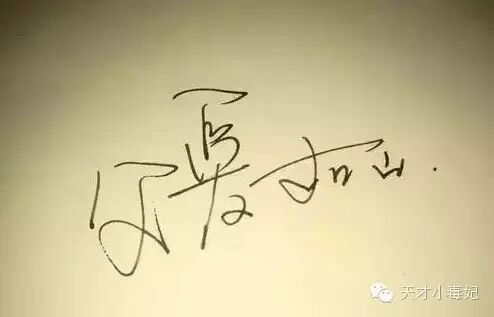 父爱如山.
天才小毒妃